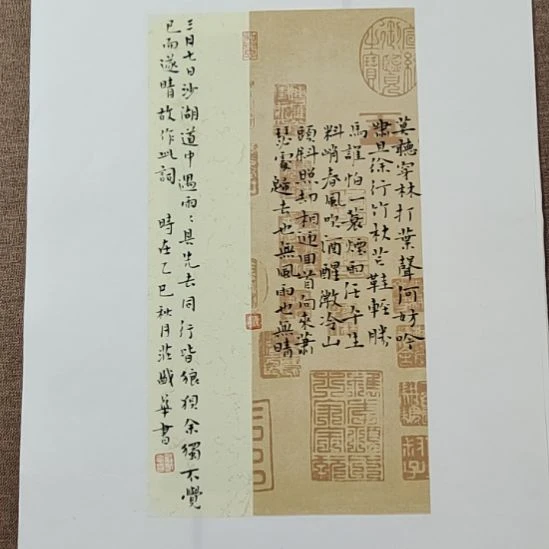 莫聽穿林打葉聲何妨吟
嘯且徐行竹杖芒鞋輕勝
馬誰怕一蓑煙雨任平生
料峭春風吹酒醒微冷山
頭斜照却相迎回首向來蕭
瑟處歸去也無風雨也無晴
三月七日沙湖道中遇雨〻具先去同行皆狼狽余獨不覺
已而遂晴故作此詞 時在乙巳秋月莊華書